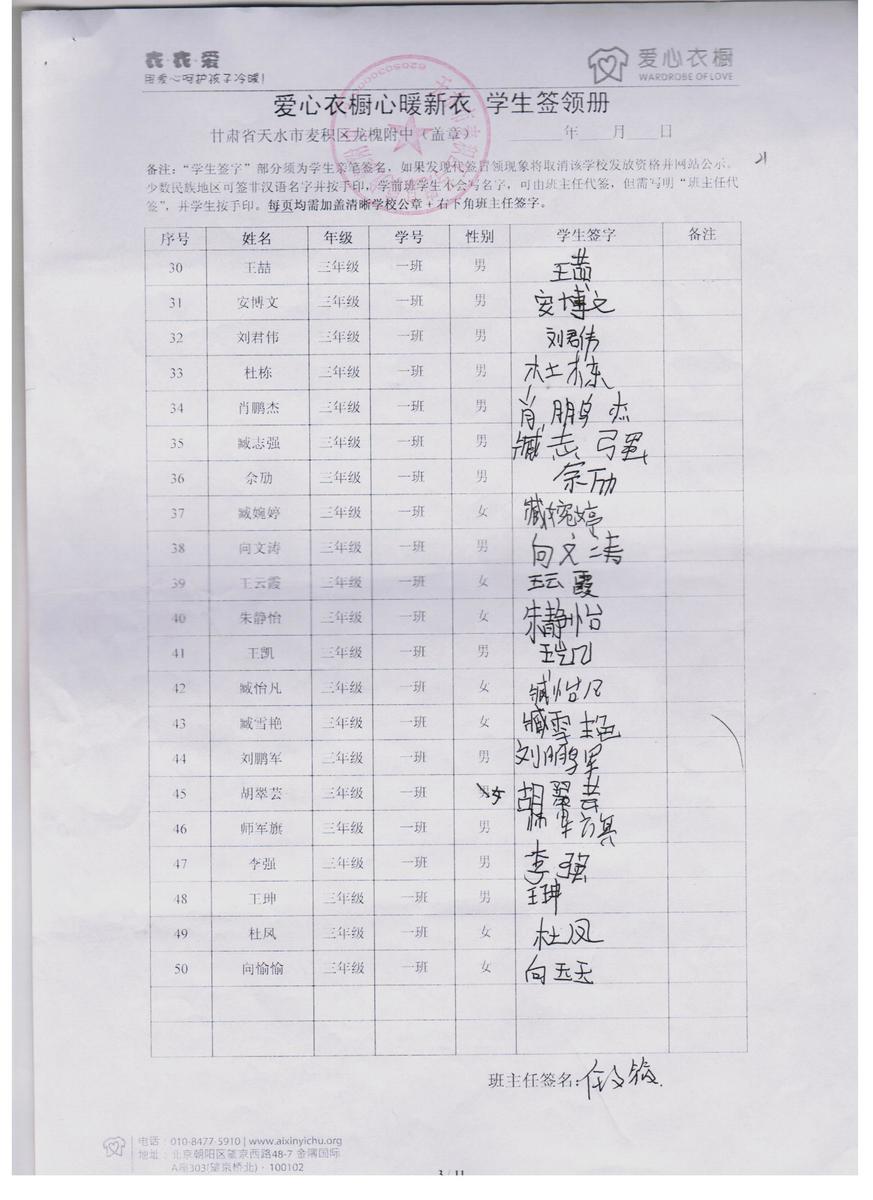 衣·衣·爱
用爱心呵护孩子冷暖!
爱心衣橱
WARDROBE OF LOVE
爱心衣橱心暖新衣 学生签领册
甘肃省天水市麦积区龙槐附中（盖章） 年 月 日
备注：“学生签字”部分须为学生亲笔签名，如果发现代签冒领现象将取消该学校发放资格并网站公示。
少数民族地区可签非汉语名字并按手印，学前班学生不会写名字，可由班主任代签，但需写明“班主任代
签”，并学生按手印。每页均需加盖清晰学校公章+右下角班主任签字。
序号 姓名 年级 学号 性别 学生签字 备注
30 王喆 三年级 一班 男
31 安博文 三年级 一班 男 安博文
32 刘君伟 三年级 一班 男 刘君伟
33 杜栋 三年级 一班 男 杜栋
34 肖鹏杰 三年级 一班 男 肖鹏杰
35 臧志强 三年级 一班 男 臧志强
36 佘劢 三年级 一班 男
37 臧婉婷 三年级 一班 女 臧婉婷
38 向文涛 三年级 一班 男 向文涛
39 王云霞 三年级 一班 女 王云霞
40 朱静怡 三年级 一班 女 朱静怡
41 王凯 三年级 一班 男 王凯
42 臧怡凡 三年级 一班 女 臧怡凡
43 臧雪艳 三年级 一班 女 臧雪艳
44 刘鹏军 三年级 一班 男 刘鹏军
45 胡翠芸 三年级 一班 男 女 胡翠芸
46 师军旗 三年级 一班 男 师军旗
47 李强 三年级 一班 男 李强
48 王珅 三年级 一班 男 王珅
49 杜凤 三年级 一班 女 杜凤
50 向愉愉 三年级 一班 女 向玉玉
班主任签名:
电话：010-8477-5910 | www.aixinyichu.org
地址：北京朝阳区望京西路48-7 金隅国际
A座303(望京桥北)·100102
3 / 11